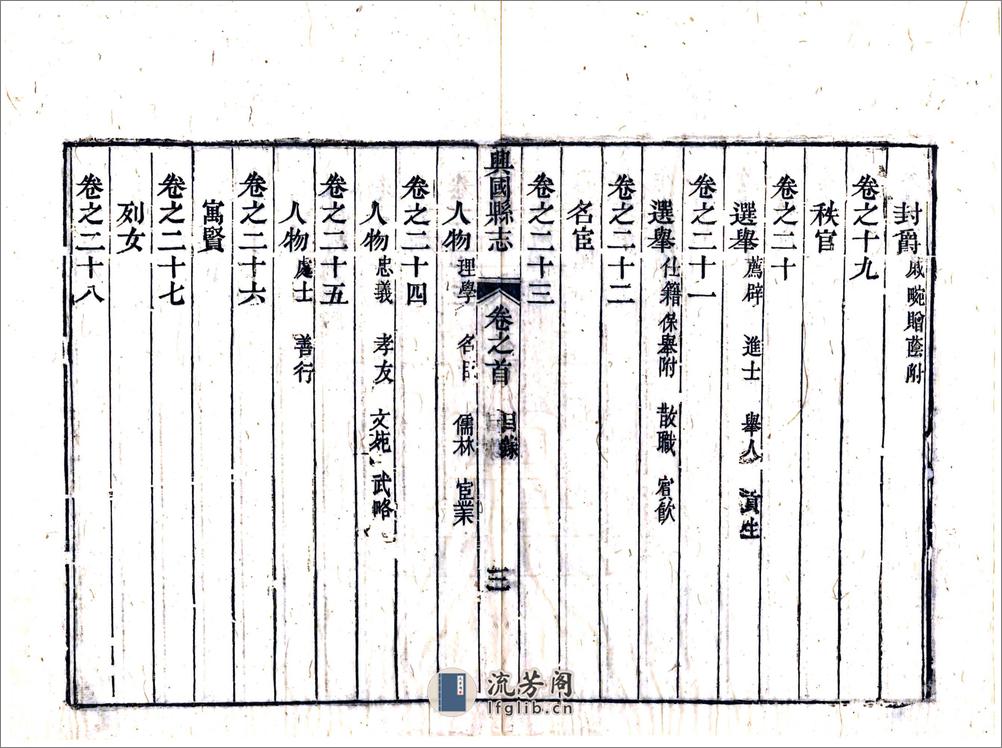 封爵 戚畹贈蔭附
卷之十九
秩官
卷之二十
選舉 薦辟 進士 舉人 貢生
卷之二十一
選舉 仕籍保舉附 散職 賓飲
卷之二十二
名宦
卷之二十三
興國縣志 卷之首 目錄 三
人物 理學 名臣 儒林 宦業
卷之二十四
人物 忠義 孝友 文苑 武略
卷之二十五
人物 處士 善行
卷之二十六
寓賢
卷之二十七
列女
卷之二十八
流芳阁
lfglib.cn